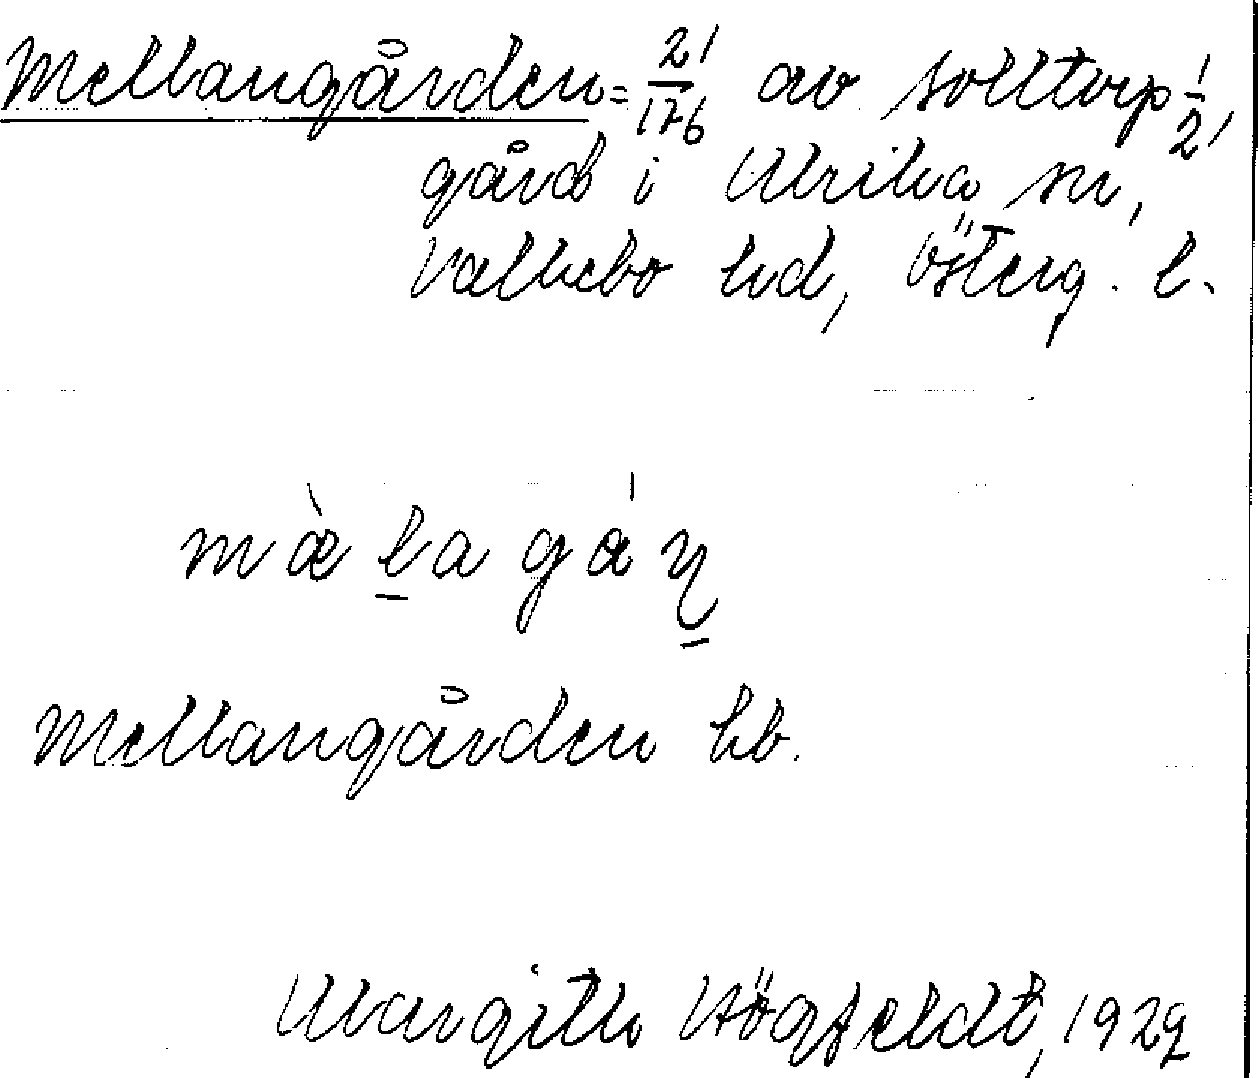 Mellangården = 21/176 av Solltorp 1/2,
gård i Ulrika sn,
Valkebo hd, Österg. l.
mæ̀lagáṇ
Mellangården hb.
Margith Högfeldt, 1929